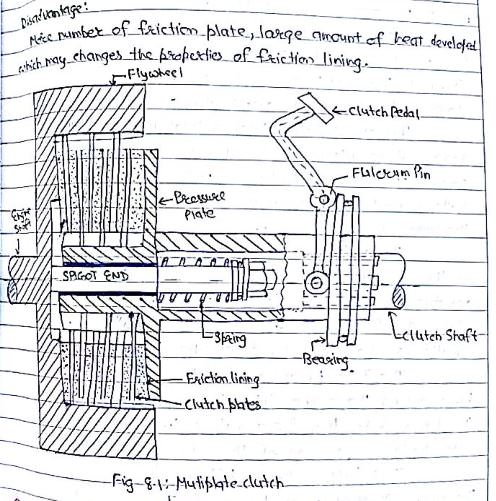 Disadvantage:
More number of friction plate, large amount of heat developed
which may changes the properties of friction lining.
Flywheel
Clutch Pedal
Fulcrum Pin
Pressure
Plate
Shaft
SPIGOT END
Spring
Clutch Shaft
Bearing
Friction lining
Clutch plates
Fig 8.1: Mutiplate clutch